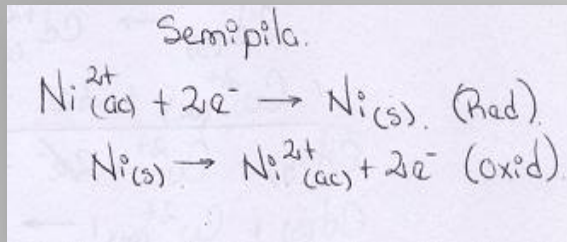 Semipila.
Ni²⁺(ac) + 2e⁻ → Ni(s). (Red).
Ni(s) → Ni²⁺(ac) + 2e⁻ (Oxid).